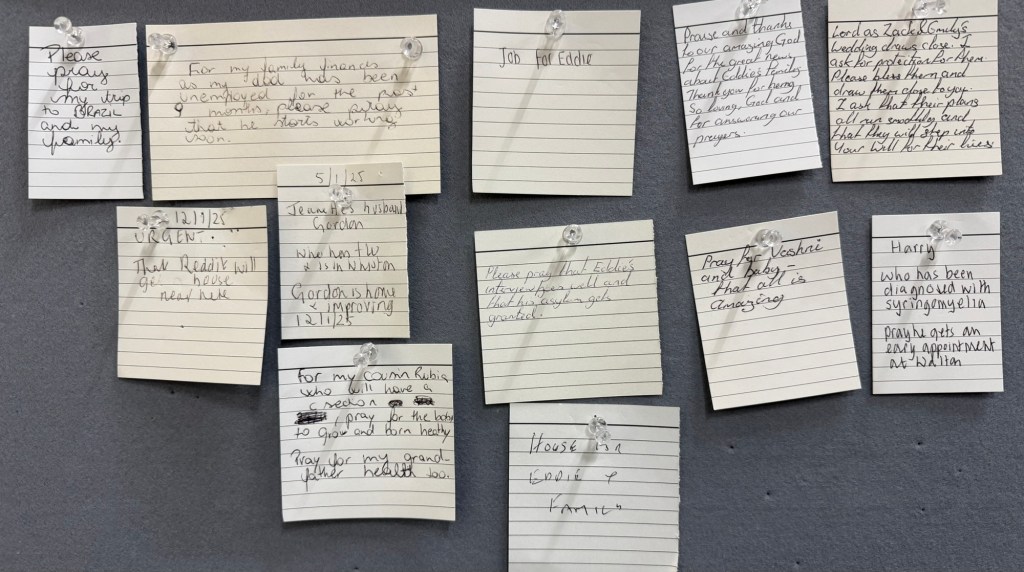 Please
pray
for
my trip
to BRAZIL
and my
family!
For my family finances
as my dad has been
unemployed for the past
9 months, please pray
that he starts working
soon.
Job for Eddie
Praise and thanks
to our amazing God
for the great news
about Eddie's family
Thank you for being
So loving God and
for answering our
prayers.
Lord as Zack & Emily's
Wedding draws close. I
ask for protection for them
Please bless them and
draw them close to you.
I ask that their plans
all run smoothly and
that they will step into
Your Will for their lives
12/1/25
URGENT.
That Reddit will
get house
near here
5/1/25
Jeanette's husband
Gordon
who has
& is in
Gordon is home
& improving
12/1/25
Please pray that Eddie's
interview goes well and
that his asylum gets
granted.
Pray for Vashni
and baby -
that all is
amazing
Harry
who has been
diagnosed with
syringomyelia
Pray he gets an
early appointment
at Walton
For my cousin Rubia
who will have a
c section
pray for the baby
to grow and born healthy
Pray for my grand-
father health too.
House for
EDDIE &
FAMILY